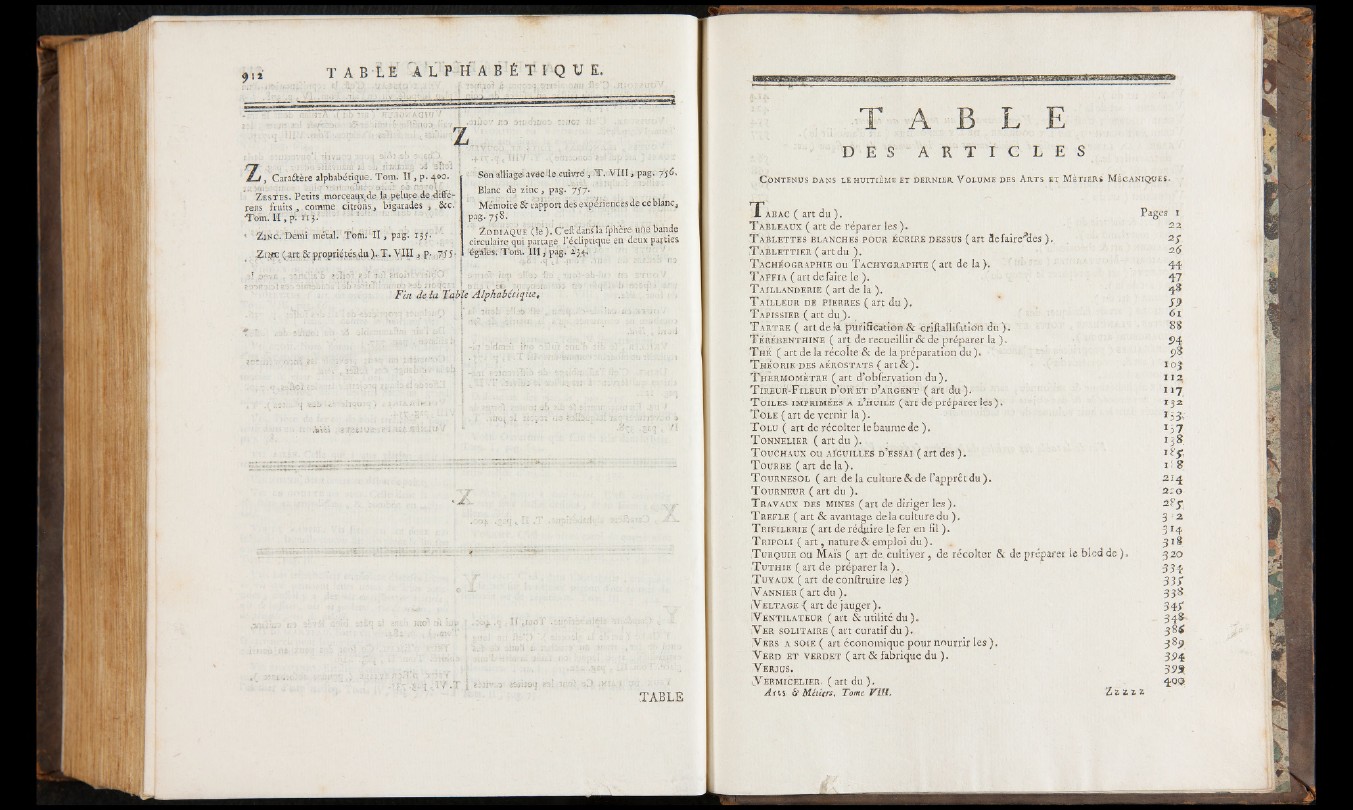 912 TABLE ALPHABÉTIQUE.
Z
Z, Caractère alphabétique. Tom. II, p. 400.
ZESTES. Petits morceaux de la pelure de diffé-
rens fruits, comme citrons, bigarades, &c.
Tom. II, p. 113.
ZINC. Demi métal. Tom. II, pag. 135.
ZINC (art & propriétés du). T. VIII, p. 755.
Son alliage avec le cuivre, T. VIII, pag. 756.
Blanc de zinc, pag. 757.
Mémoire & rapport des expériences de ce blanc,
pag. 758.
ZODIAQUE (le). C'est dans la sphère une bande
circulaire qui partage l'écliptique en deux parties
égales. Tom. III, pag. 234.
Fin de la Table Alphabétique.
TABLE
TABLE
DES ARTICLES
CONTENUS DANS LE HUITIÈME ET DERNIER VOLUME DES ARTS ET MÉTIERS MÉCANIQUES.
TABAC ( art du ). Pages 1
TABLEAUX ( art de réparer les ). 22
TABLETTES BLANCHES POUR ÉCRIRE DESSUS ( art de faire des ). 25
TABLETTIER ( art du ). 26
TACHÉOGRAPHIE ou TACHYGRAPHIE ( art de la ). 44
TAFFIA ( art de faire le ). 47
TAILLANDERIE ( art de la ). 48
TAILLEUR DE PIERRES ( art du ). 59
TAPISSIER ( art du ). 61
TARTRE ( art de la purification & cristallisation du ). 88
TÉRÉBENTHINE ( art de recueillir & de préparer la ). 94
THÉ ( art de la récolte & de la préparation du ). 98
THÉORIE DES AÉROSTATS ( art & ). 103
THERMOMÈTRE ( art d'observation du ). 112
TIREUR-FILEUR D'OR ET D'ARGENT ( art du ). 117
TOILES IMPRIMÉES A L'HUILE ( art de préparer les ). 132
TOLE ( art de vernir la ). 133
TOLU ( art de récolter le baume de ). 137
TONNELIER ( art du ). 138
TOUCHAUX ou AIGUILLES D'ESSAI ( art des ). 185
TOURBE ( art de la ). 188
TOURNESOL ( art de la culture & de l'apprêt du ). 214
TOURNEUR ( art du ).
TRAVAUX DES MINES ( art de diriger les ). 285
TREFLE ( art & avantage de la culture du ).
TRIFILERIE ( art de réduire le fer en fil ). 314
TRIPOLI ( art, nature & emploi du ). 318
TURQUIE ou MAïS ( art de cultiver, de récolter & de préparer le bled de ). 320
TUTHIE ( art de préparer la ). 334
TUYAUX ( art de construire les ) 335
VANNIER ( art du ). 338
VELTAGE ( art de jauger ). 345
VENTILATEUR ( art & utilité du ). 348
VER SOLITAIRE ( art curatif du ). 386
VERS A SOIE ( art économique pour nourrir les ). 389
VERD ET VERDET ( art & fabrique du ). 394
VERJUS.
VERMICELIER. ( art du ). 400
Arts & Métiers. Tome VIII. Zzzzz